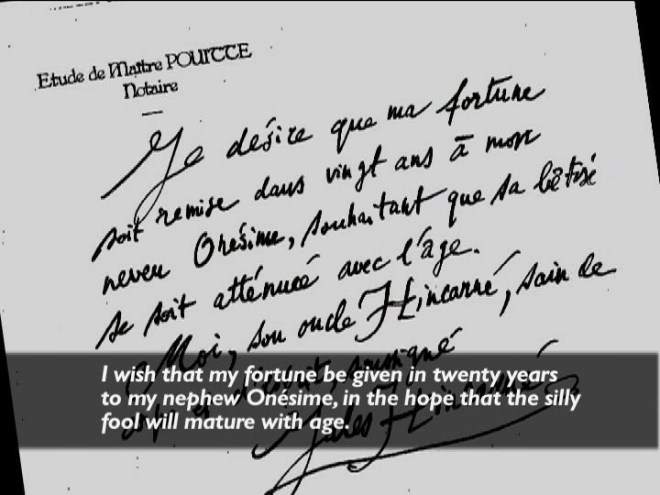 Etude de Maître
Notaire
Je désire que ma fortune
soit remise dans vingt ans à mon
neveu Onésime, souhaitant que sa bêtise
se soit atténuée avec l'âge.
Moi, son oncle Hincarné, sain de
soussigné
Jules Hincarné
I wish that my fortune be given in twenty years
to my nephew Onésime, in the hope that the silly
fool will mature with age.